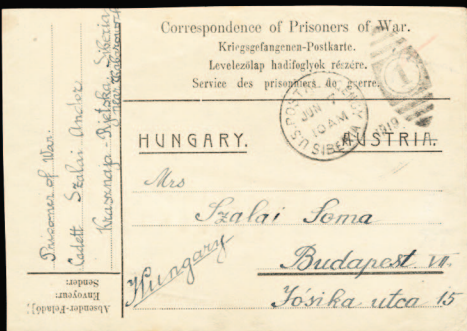 Correspondence of Prisoners of War.
Kriegsgefangenen-Postkarte.
Levelezőlap hadifoglyok részére.
Service des prisonniers de guerre.
U.S. POSTAL
JUN
10 AM
1919
SIBERIA
1
HUNGARY.
AUSTRIA.
Mrs
Szalai Soma
Budapest VII.
Jósika utca 15
Hungary
Prisoner of War.
Cadett Szalai Andor
Krasznaja-Rjetska Siberia
near
Absender-Feladó:
Envoyeur:
Sender: